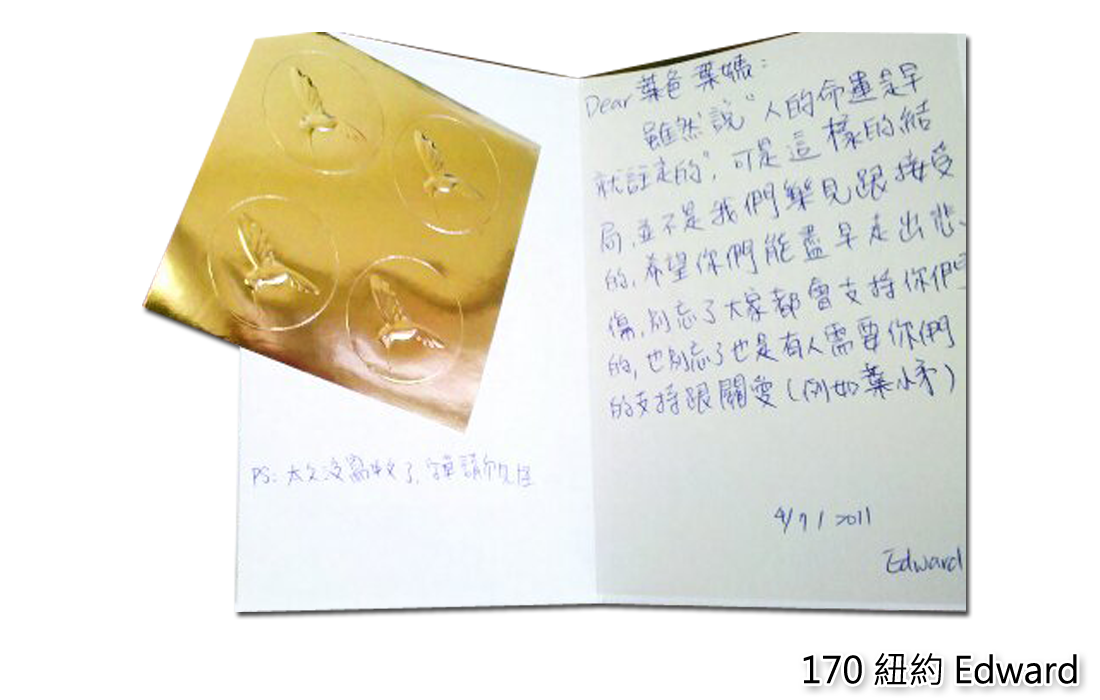 Dear 葉爸 葉媽:
雖然說"人的命運是早
就註定的", 可是這樣的結
局, 並不是我們樂見跟接受
的, 希望你們能盡早走出悲
傷, 別忘了大家都會支持你們
的, 也別忘了也是有人需要你們
的支持跟關愛 (例如葉小矛)
4/7/2011
Edward
PS: 太久沒寫中文了, 請勿見怪
170 紐約 Edward